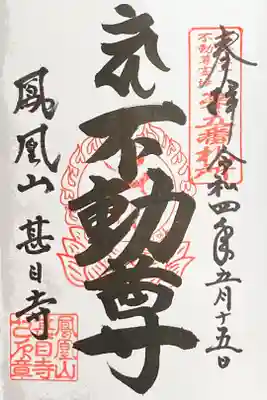 奉拝 令和四年五月十五日
不動尊
鳳凰山 甚目寺
鳳凰山
甚目寺